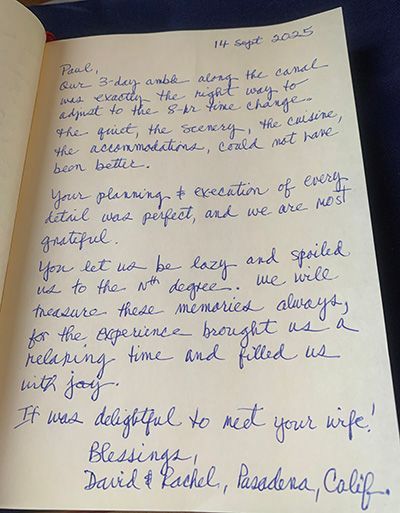 14 Sept 2025
Paul,
Our 3-day amble along the canal
was exactly the right way to
adjust to the 8-hr time change.
the quiet, the scenery, the cuisine,
the accommodations, could not have
been better.
Your planning & execution of every
detail was perfect, and we are most
grateful.
You let us be lazy and spoiled
us to the Nth degree. We will
treasure these memories always,
for the experience brought us a
relaxing time and filled us
with joy.
It was delightful to meet your wife!
Blessings,
David & Rachel, Pasadena, Calif.